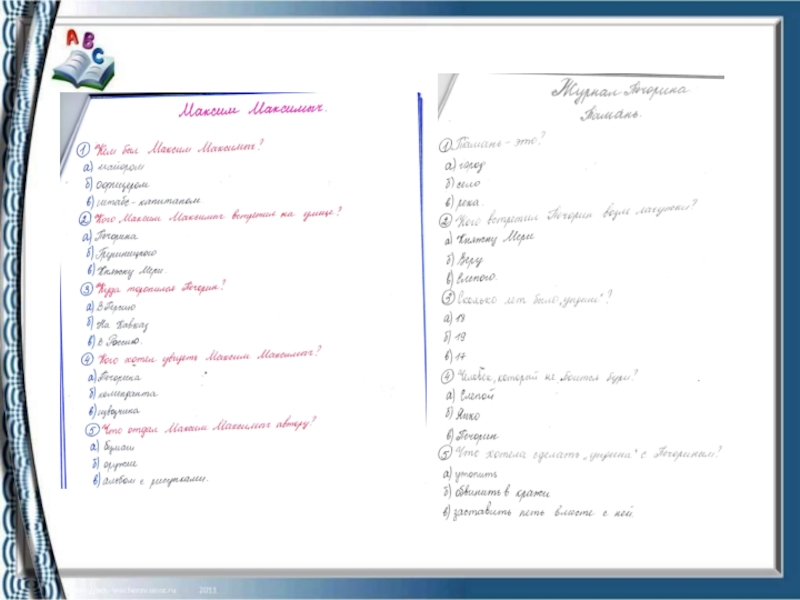 A B C
Максим Максимыч.
1 Кем был Максим Максимыч?
а) майором
б) офицером
в) штабс-капитаном
2 Кого Максим Максимыч встретил на улице?
а) Печорина
б) Грушницкого
в) Княжну Мери.
3 Куда торопился Печорин?
а) В Персию
б) На Кавказ
в) В Россию.
4 Кого хотел увидеть Максим Максимыч?
а) Печорина
б)
в) извозчика
5 Что отдал Максим Максимыч автору?
а) бумаги
б) оружие
в) альбом с рисунками.
Журнал Печорина
Тамань.
1 Тамань - это?
а) город
б) село
в) река.
2 Кого встретил Печорин возле лачужки?
а) Княжну Мери
б) Веру
в) Слепого.
3 Сколько лет было „ундине"?
а) 18
б) 19
в) 17
4 Человек, который не боится бури?
а) Слепой
б) Янко
в) Печорин
5 Что хотела сделать „ундина" с Печориным?
а) утопить
б) обвинить в краже
в) заставить петь вместе с ней.
2011